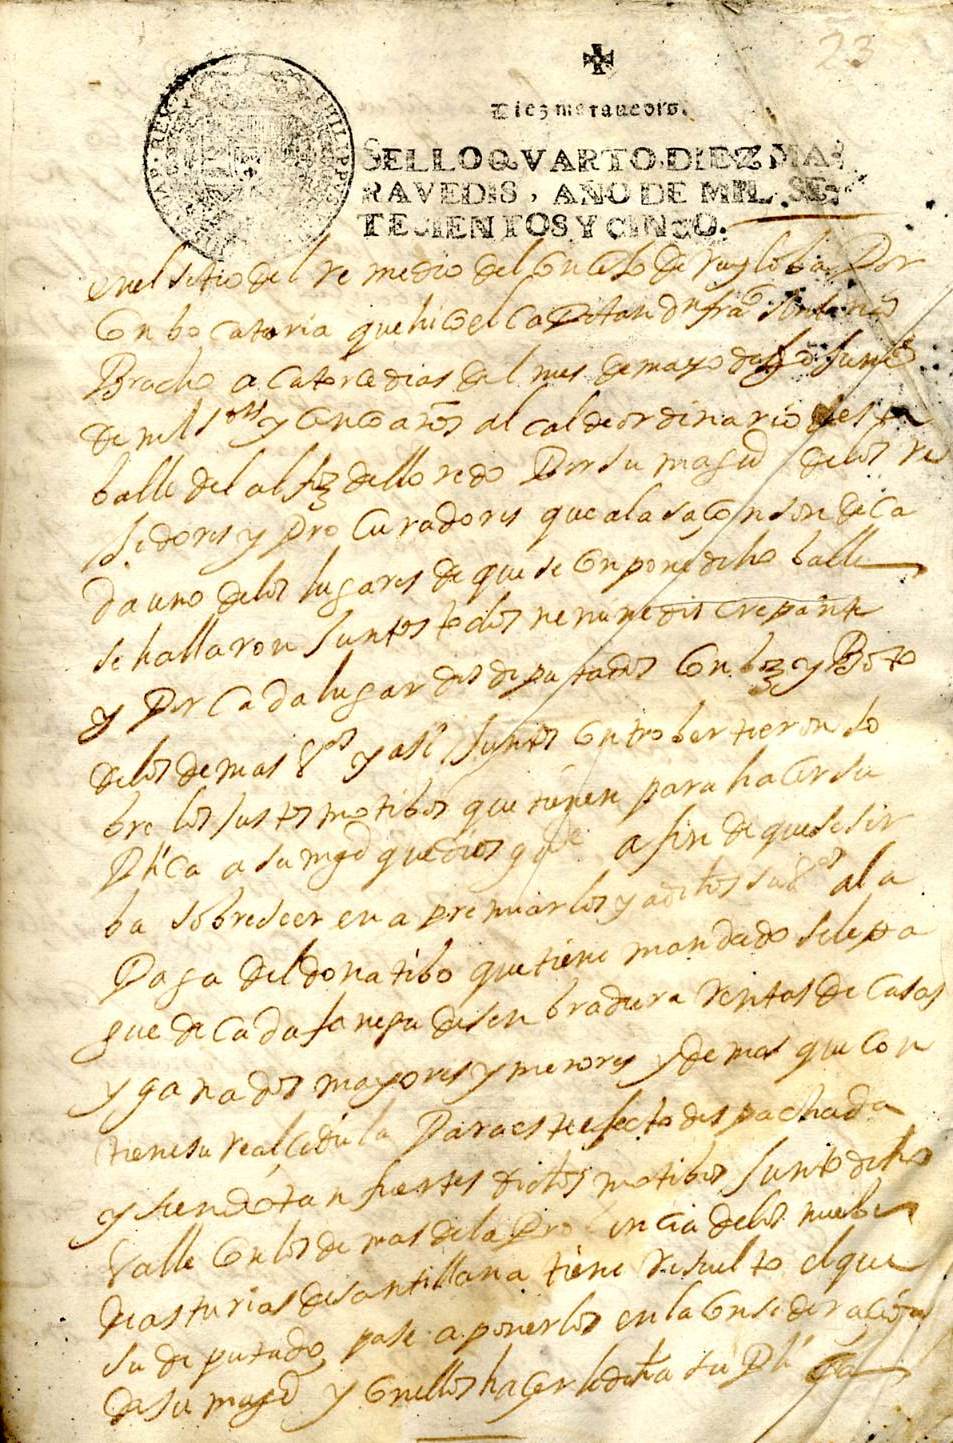 23
Diez maravedis.
SELLO QVARTO, DIEZ MA-
RAVEDIS, AÑO DE MIL SE-
TECIENTOS Y CINCO.
enel sitio del Remedio del Conçexo de Ruyloba Por
Conbocatoria que hiço el Capitan Dn franco Antonio
Bracho a Catorce dias del mes de mayo de
de mill sos y cinco años alcalde ordinario deste
balle del alfoz de lloredo Por su magd de los Re
jidores y Procuradores que a la saçon son de Ca
da uno de los lugares de que se Conpone dicho balle
se hallaron Juntos todos nemine discrepante
y Por Cada lugar dos diputados Con boz y Boto
de los demas Vos y asi Juntos Controbertieron so
bre los Justos motibos que tienen para hacer su
Plica a su magd que Dios gde a fin de que se sir
ba sobreseer en apremiarlos y a dichos sus Vos a la
Paga del donatibo que tiene mandado se le pa
gue de Cada fanega de senbradura Rentas de Casas
y ganados mayores y menores y demas que Con
tiene su Real Cedula Para este efecto despachada
y siendo tan fuertes dichos motibos Junto dicho
Valle Con los demas de la Probincia de los nuebe
de asturias de santillana tiene Resuelto el que
su diputado pase a ponerlos en la Consideraçion
de su magd y Con ellos hacer la dicha su Plica